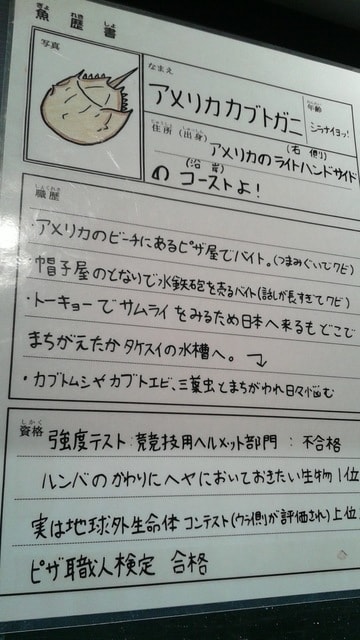 魚歴書
ぎょ れき しょ
写真
なまえ
アメリカカブトガニ
年齢
シラナイヨッ!
住所(出身)
(右側)
アメリカのライトハンドサイド
(沿岸)
のコーストよ!
職歴
・アメリカのビーチにあるピザ屋でバイト。(つまみぐいでクビ)
・帽子屋のとなりで水鉄砲を売るバイト(話しが長すぎてクビ)
・トーキョーでサムライをみるため日本へ来るもどこで
まちがえたかタケスイの水槽へ。
・カブトムシやカブトエビ、三葉虫とまちがわれ日々悩む
しかく
資格
強度テスト:競技用ヘルメット部門:不合格
ルンバのかわりにヘヤにおいておきたい生物1位
実は地球外生命体コンテスト(ウラ側が評価され)上位
ピザ職人検定 合格